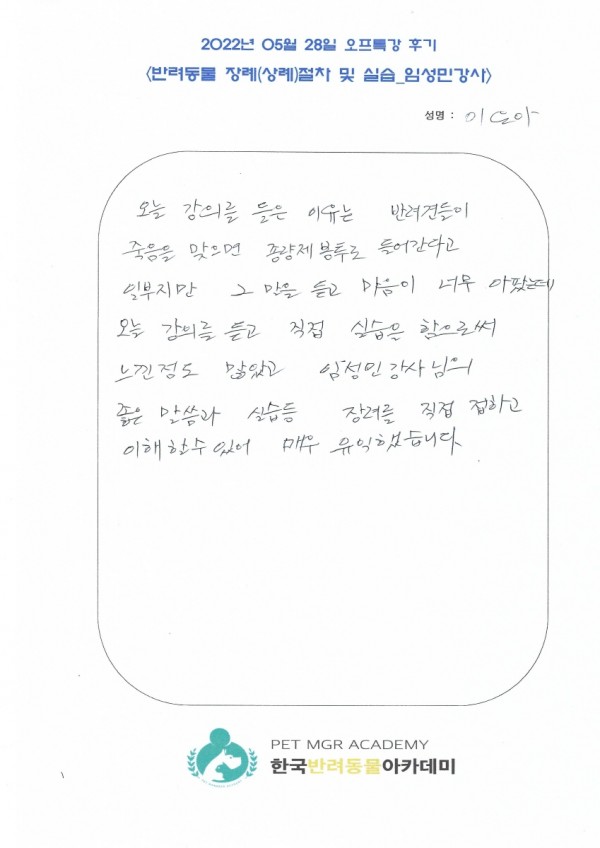 2022년 05월 28일 오프특강 후기
<반려동물 장례(상례)절차 및 실습_임성민강사>
성명 : 이도아
오늘 강의를 들은 이유는 반려견들이
죽음을 맞으면 종량제봉투로 들어간다고
일부지만 그 말을 듣고 마음이 너무 아팠는데
오늘 강의를 듣고 직접 실습을 함으로써
느낀점도 많았고 임성민강사님의
좋은 말씀과 실습등 장려를 직접 접하고
이해할수있어 매우 유익했습니다
PET MGR ACADEMY
한국반려동물아카데미